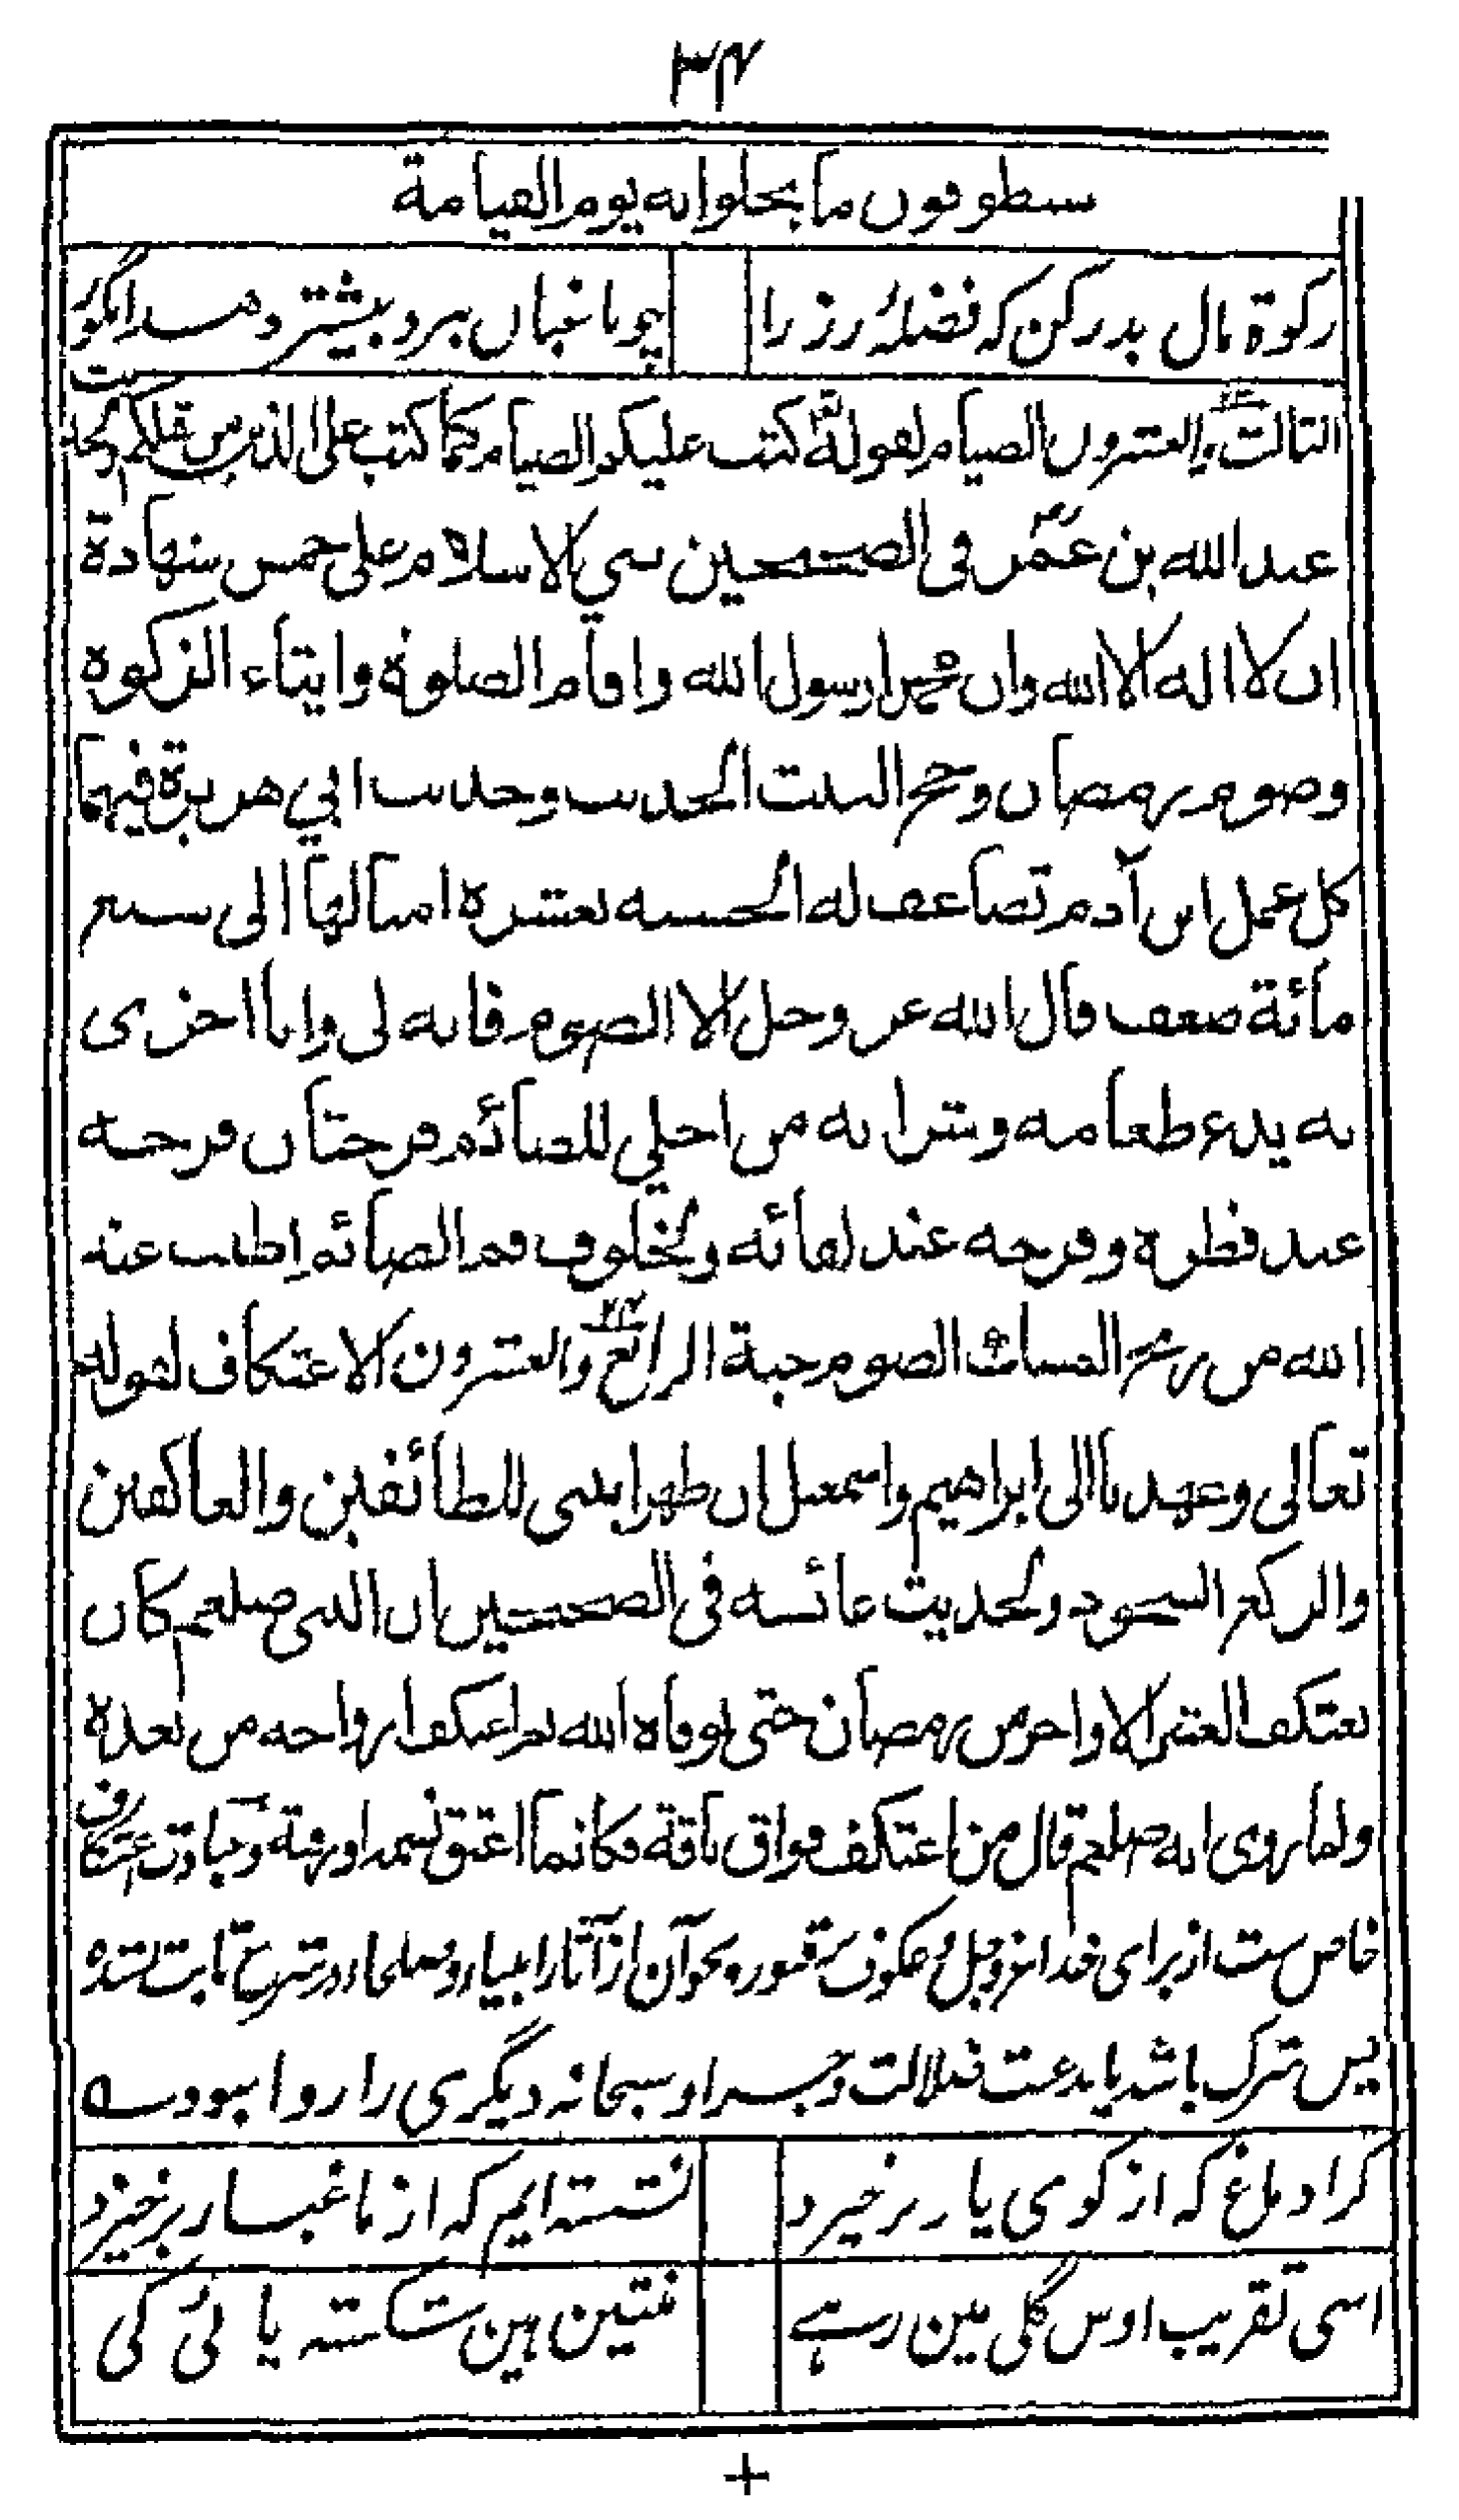 ۳۴
سيطوقون ما بخلوا به يوم القيامة
زکوة مال بدر کن که فضلۂ رز را
چو باغبان ببرد بیشتر دهد انگور
الثالث والعشرون الصيام لقوله تعالى كتب عليكم الصيام كما كتب على الذين من قبلكم ولحديث
عبد الله بن عمر رض في الصحيحين بني الاسلام على خمس شهادة
ان لا اله الا الله وان محمدا رسول الله واقام الصلوة وايتاء الزكوة
وصوم رمضان وحج البيت الحديث وحديث ابي هريرة فيهما
كل عمل ابن آدم تضاعف له الحسنة بعشرة امثالها الى سبع
مائة ضعف قال الله عز وجل الا الصوم فانه لى وانا اجزى
به يدع طعامه وشرابه من اجلي للصائم فرحتان فرحة
عند فطره وفرحة عند لقائه ولخلوف فم الصائم اطيب عند
الله من ريح المسك الصوم جنة الرابع والعشرون الاعتكاف لقوله
تعالى وعهدنا الى ابراهيم واسمعيل ان طهرا بيتى للطائفين والعاكفين
والركع السجود ولحديث عائشة فى الصحيحين ان النبى صلعم كان
يعتكف العشر الاواخر من رمضان حتى توفاه الله ثم اعتكف ازواجه من بعده
ولما روى انه صلعم قال من اعتكف فواق ناقة فكانما اعتق نسمة او رقبة وعبادت اعتکاف
خاص ست از برای خدا عز وجل و عکوف بر قبور و نحو آن از آثار انبیا و صلحا در شرع ثابت نشده
پس شرک باشد یا بدعت ضلالت و جز او سبحانه دیگری را روا نبود
کرا دماغ که از کوی یار برخیزد
نشسته ایم که از ما غبار برخیزد
اسی تقریب اوس گلی مین رہے
منتین ہین شکستہ پائی کی
+